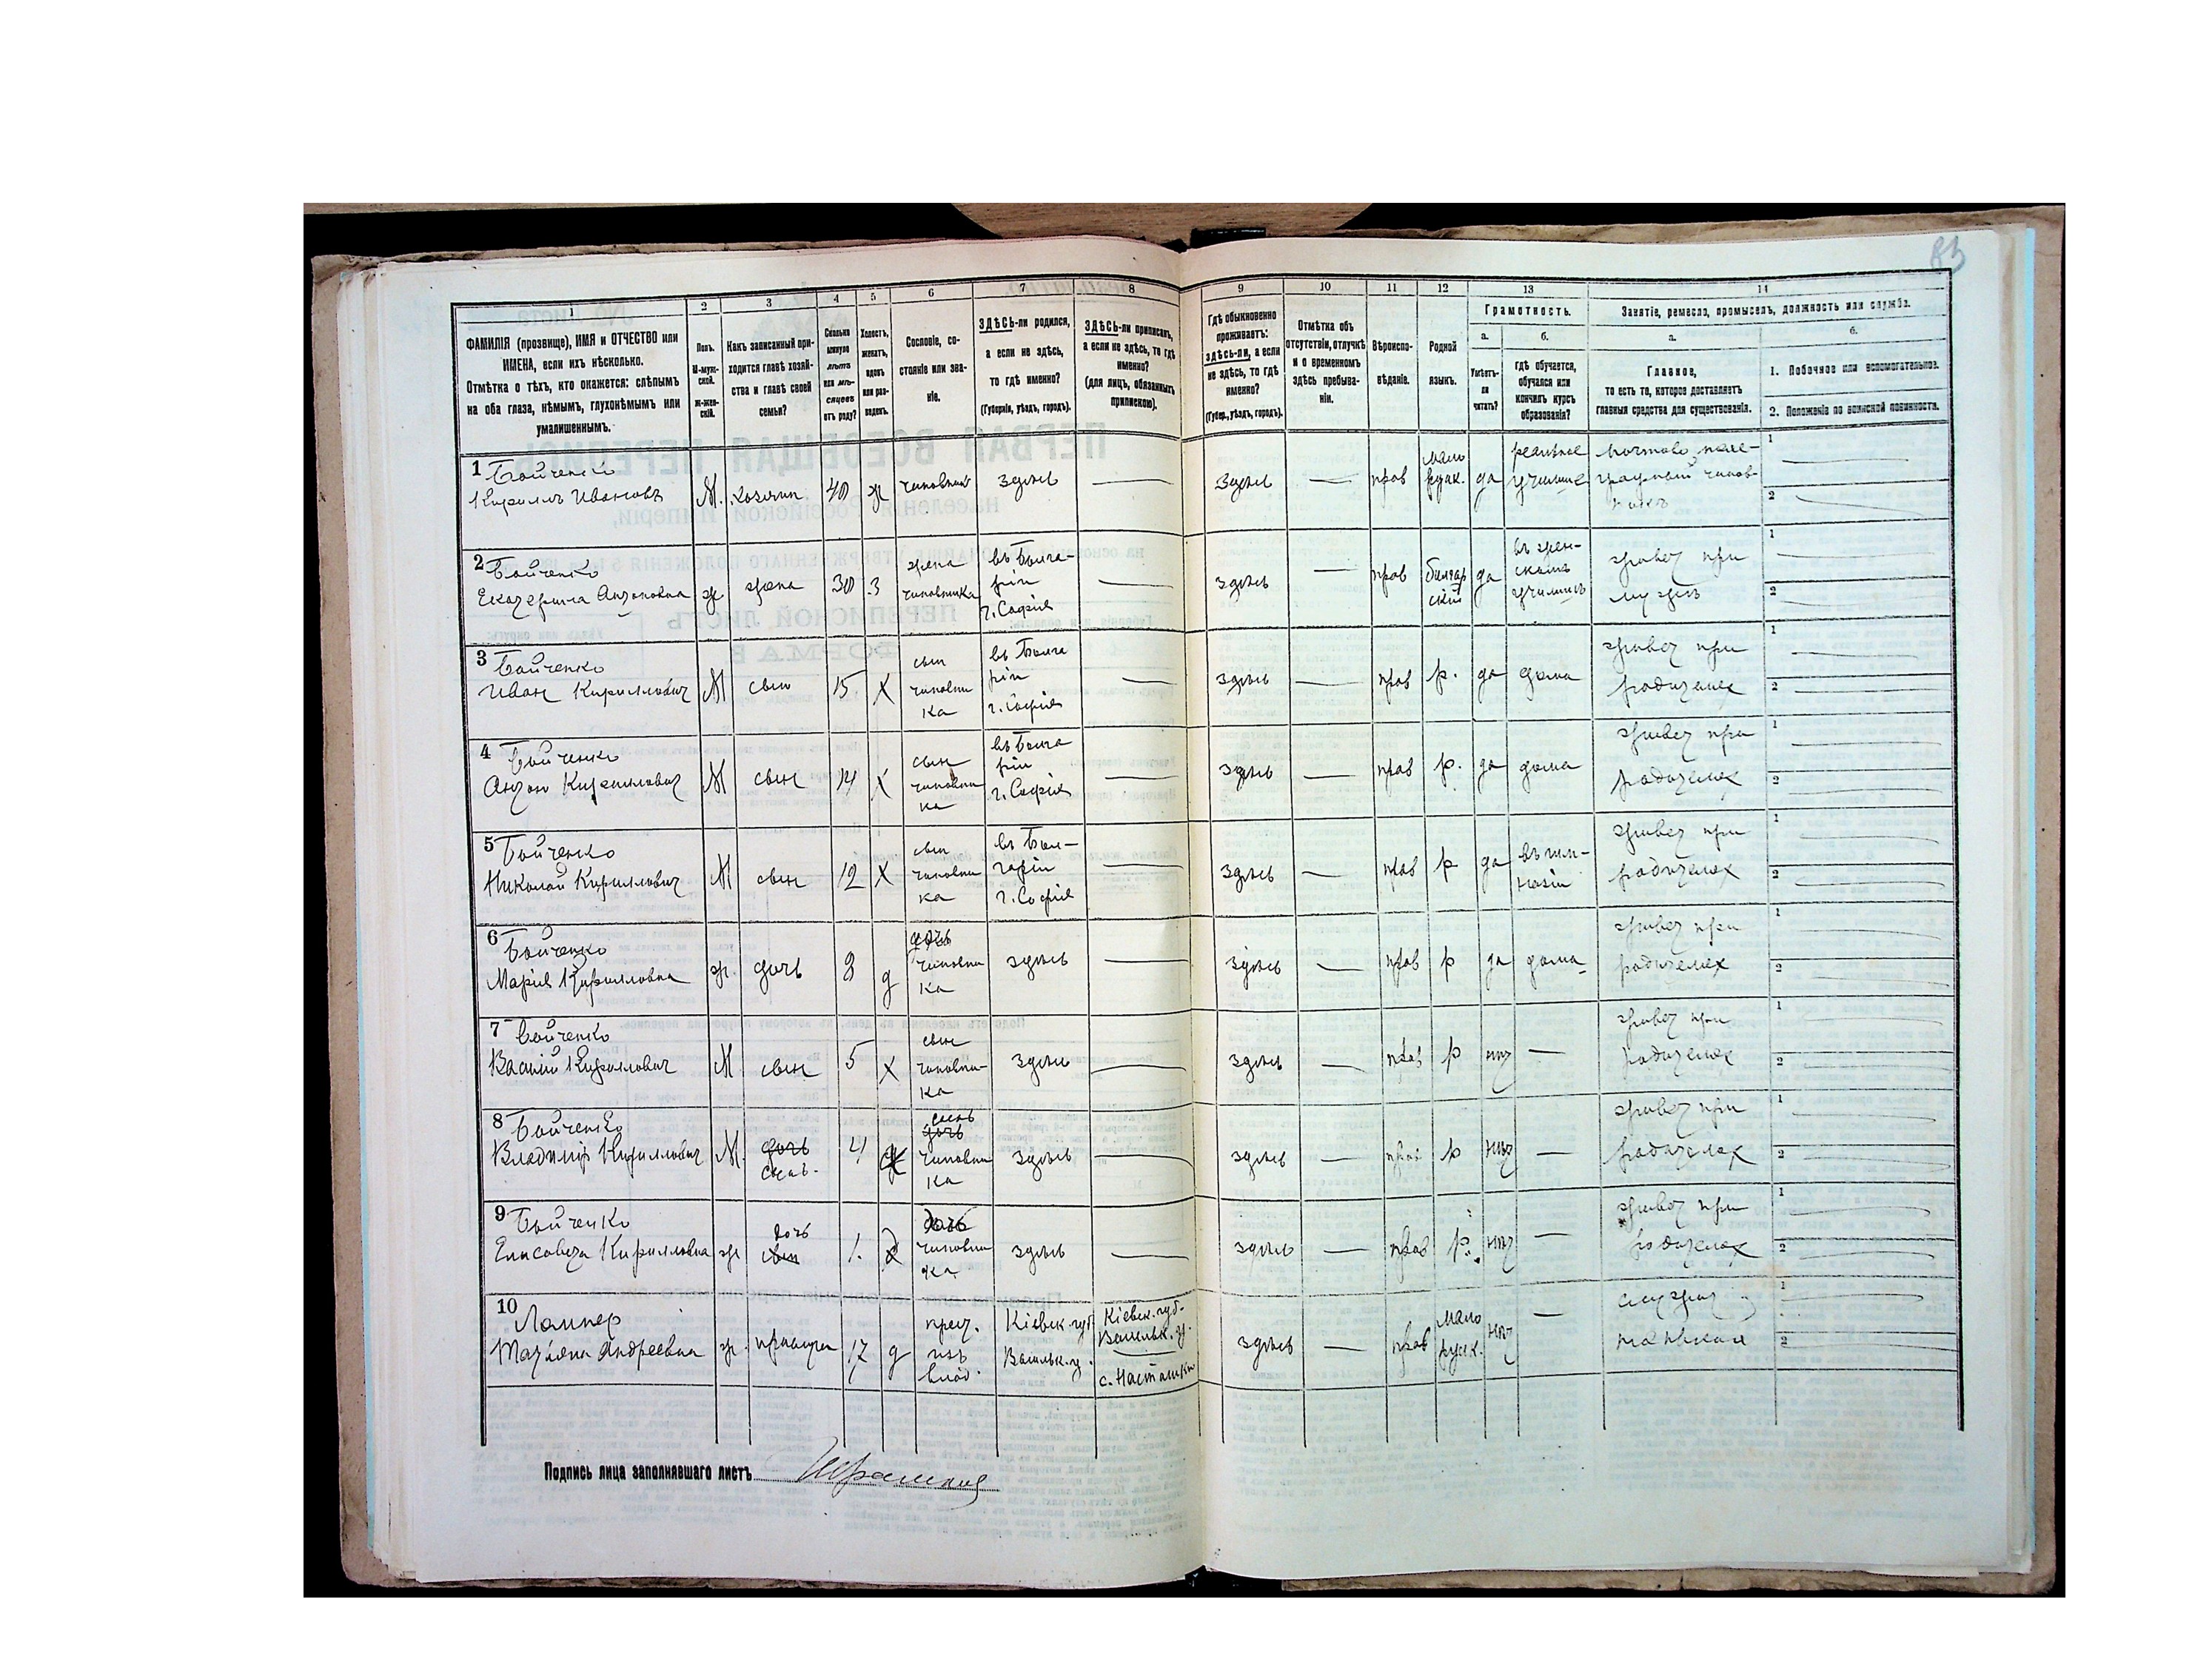 83
1 2 3 4 5 6 7 8 9 10 11 12 13 14
ФАМИЛІЯ (прозвище), ИМЯ и ОТЧЕСТВО или
ИМЕНА, если ихъ нѣсколько.
Отмѣтка о тѣхъ, кто окажется: слѣпымъ
на оба глаза, нѣмымъ, глухонѣмымъ или
умалишеннымъ.
Полъ.
М-муж-
ской.
ж-жен-
скій.
Какъ записанный при-
ходится главѣ хозяй-
ства и главѣ своей
семьи?
Сколько
минуло
лѣтъ
или мѣ-
сяцевъ
отъ роду?
Холостъ,
женатъ,
вдовъ
или раз-
веденъ.
Сословіе, со-
стояніе или зва-
ніе.
ЗДѢСЬ-ли родился,
а если не здѣсь,
то гдѣ именно?
(Губернія, уѣздъ, городъ).
ЗДѢСЬ-ли приписанъ,
а если не здѣсь, то гдѣ
именно?
(для лицъ, обязанныхъ
припискою).
Гдѣ обыкновенно
проживаетъ:
здѣсь-ли, а если
не здѣсь, то гдѣ
именно?
(Губер., уѣздъ, городъ).
Отмѣтка объ
отсутствіи, отлучкѣ
и о временномъ
здѣсь пребыва-
ніи.
Вѣроиспо-
вѣданіе.
Родной
языкъ.
Грамотность.
а.
Умѣетъ-
ли
читать?
б.
гдѣ обучается,
обучался или
кончилъ курсъ
образованія?
Занятіе, ремесло, промыселъ, должность или служба.
а.
Главное,
то есть то, которое доставляетъ
главныя средства для существованія.
б.
1. Побочное или вспомогательное.
2. Положеніе по воинской повинности.
1 Бойченко
Кирилъ Ивановъ М. хозяин 40 ж чиновникъ здѣсь — здѣсь — прав мало руск. да реальное училище почтово теле-графный чинов-никъ
2 Бойченко
Екатерина Антоновна ж. жена 30 з жена чиновника въ Болга-ріи г. Софія — здѣсь — прав болгарскій да въ жен-скомъ училищѣ живет при мужѣ
3 Бойченко
Иван Кириллович М сын 15 х сын чиновника въ Болгаріи г. Софія — здѣсь — прав р. да дома живет при родителях
4 Бойченко
Антон Кириллович М сын 14 х сын чиновника въ Болгаріи г. Софія — здѣсь — прав р. да дома живет при родителях
5 Бойченко
Николай Кириллович М сын 12 х сын чиновника въ Бол-гаріи г. Софія — здѣсь — прав р да въ гим-назіи живет при родителях
6 Бойченко
Марія Кирилловна ж. дочь 8 д дочь чиновника здѣсь — здѣсь — прав р да дома живет при родителях
7 Бойченко
Василій Кириллович М сын 5 х сын чиновни-ка здѣсь — здѣсь — прав р нѣт — живет при родителях
8 Бойченко
Владиміръ Кириллович М. дочь сынъ. 4 х сынъ дочь чиновника здѣсь — здѣсь — прав р нѣт — живет при родителях
9 Бойченко
Елисавета Кирилловна ж дочь сын 1. д дочь чиновника здѣсь — здѣсь — прав р. нѣт — живет при родителях
10
Татіяна Андреевна ж. прислуга 17 д крест. изъ Кіевск. губ. Васильк. у. Кіевск. губ. Васильк. у. с. Насташки здѣсь — прав мало руск. нѣт —
Подпись лица заполнявшаго листъ